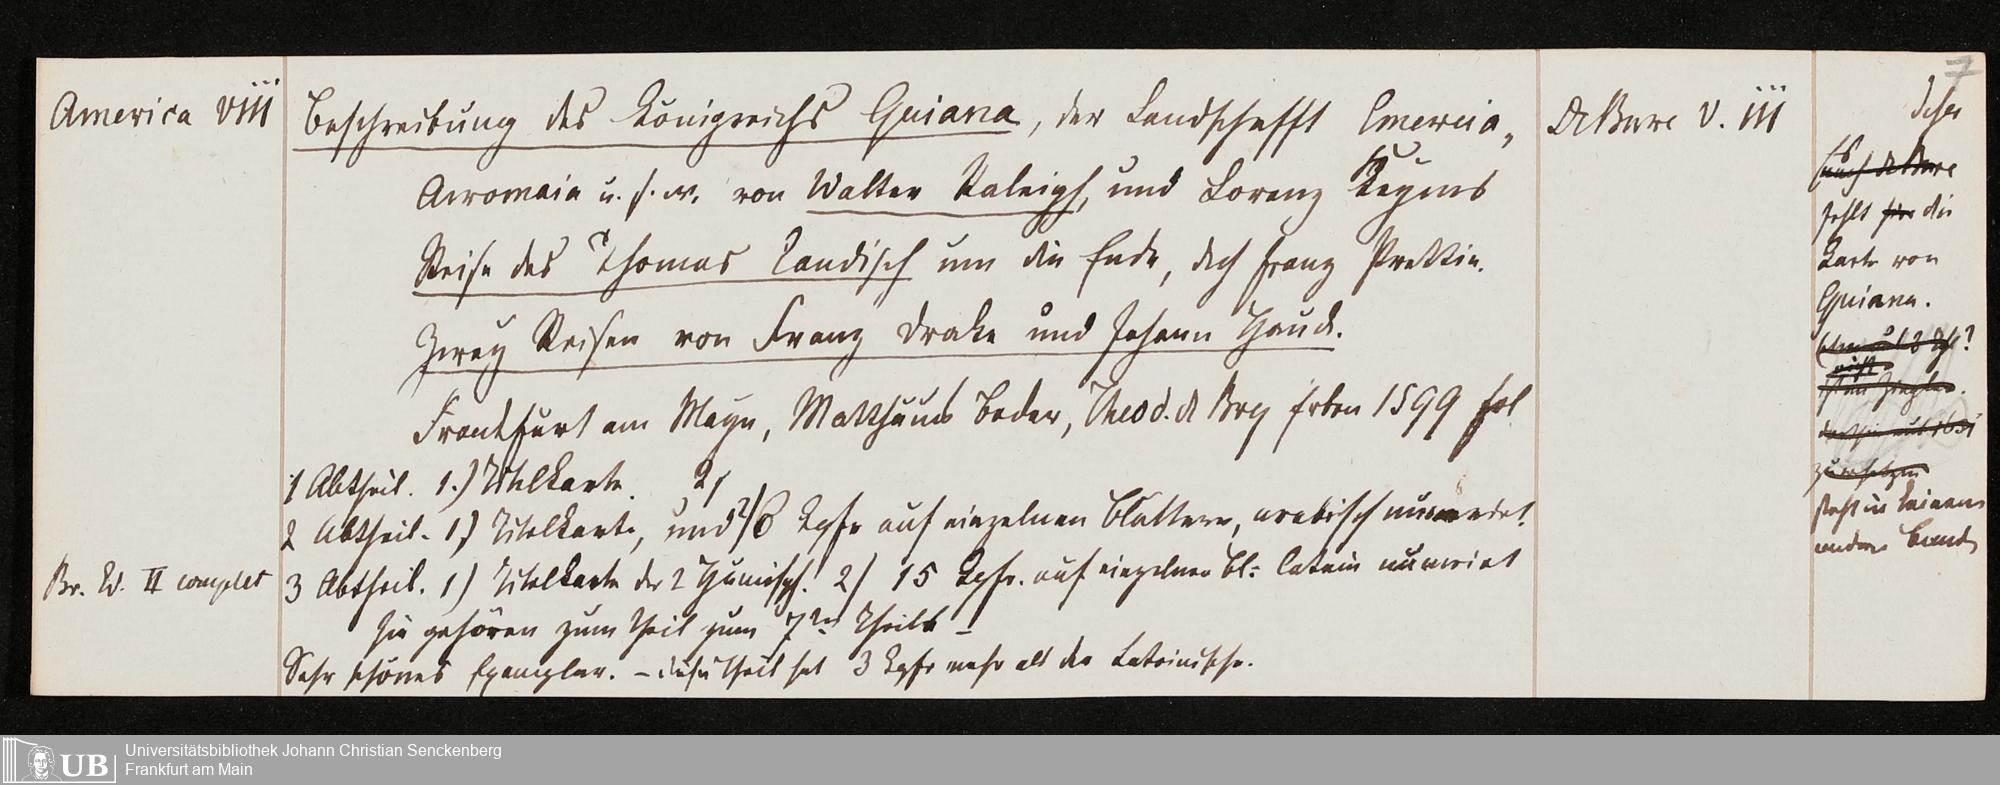 America VIII
Beschreibung des Königreichs Guiana, der Landschafft Emereia,
Arromaia u. s. w. von Walter Raleigh, und Lorenz Keyms
Reise des Thomas Candisch um die Erde, dch Franz Prettie.
Zwey Reisen von Franz Drake und Johann Hauck.
Franckfurt am Mayn, Matthäus Becker, Theod. de Bry Erben 1599 fol
1 Abtheil. 1.) Titelkarte. 2)
2 Abtheil. 1) Titelkarte, und 2) 6 Kpfr auf einzelnen Blattern, arabisch numerirt.
3 Abtheil. 1) Titelkarte der 2 Hemisph. 2) 15 Kpfr. auf einzelnen Bl: latein numerirt
sie gehören zum Theil zum 7ten Theile –
Sehr schönes Exemplar. – dieser Theil hat 3 Kpfr mehr als der Lateinische.
Br. W. II complet
DeBure V. III
7
Es
fehlt die
Karte von
Guiana.